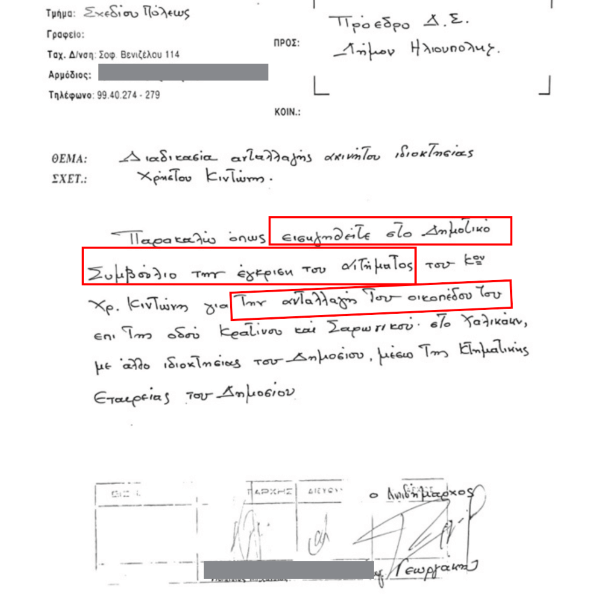 Τμήμα: Σχεδίου Πόλεως
Γραφείο:
Ταχ. Δ/νση: Σοφ. Βενιζέλου 114
Αρμόδιος:
Τηλέφωνο: 99.40.274 - 279
ΠΡΟΣ:
Πρόεδρο Δ.Σ.
Δήμου Ηλιουπόλης.
ΚΟΙΝ.:
ΘΕΜΑ: Διαδικασία ανταλλαγής ακινήτου ιδιοκτησίας
ΣΧΕΤ.: Χρήστου Κιντώνη.
Παρακαλώ όπως εισηγηθείτε στο Δημοτικό
Συμβούλιο την έγκριση του αιτήματος του κου
Χρ. Κιντώνη για την ανταλλαγή του οικοπέδου του
επί της οδού Κρατίνου και Σαρωνικού στο Χαλικάκι,
με άλλο ιδιοκτησίας του Δημοσίου, μέσω της Κτηματικής
Εταιρείας του Δημοσίου
ο Αντιδήμαρχος